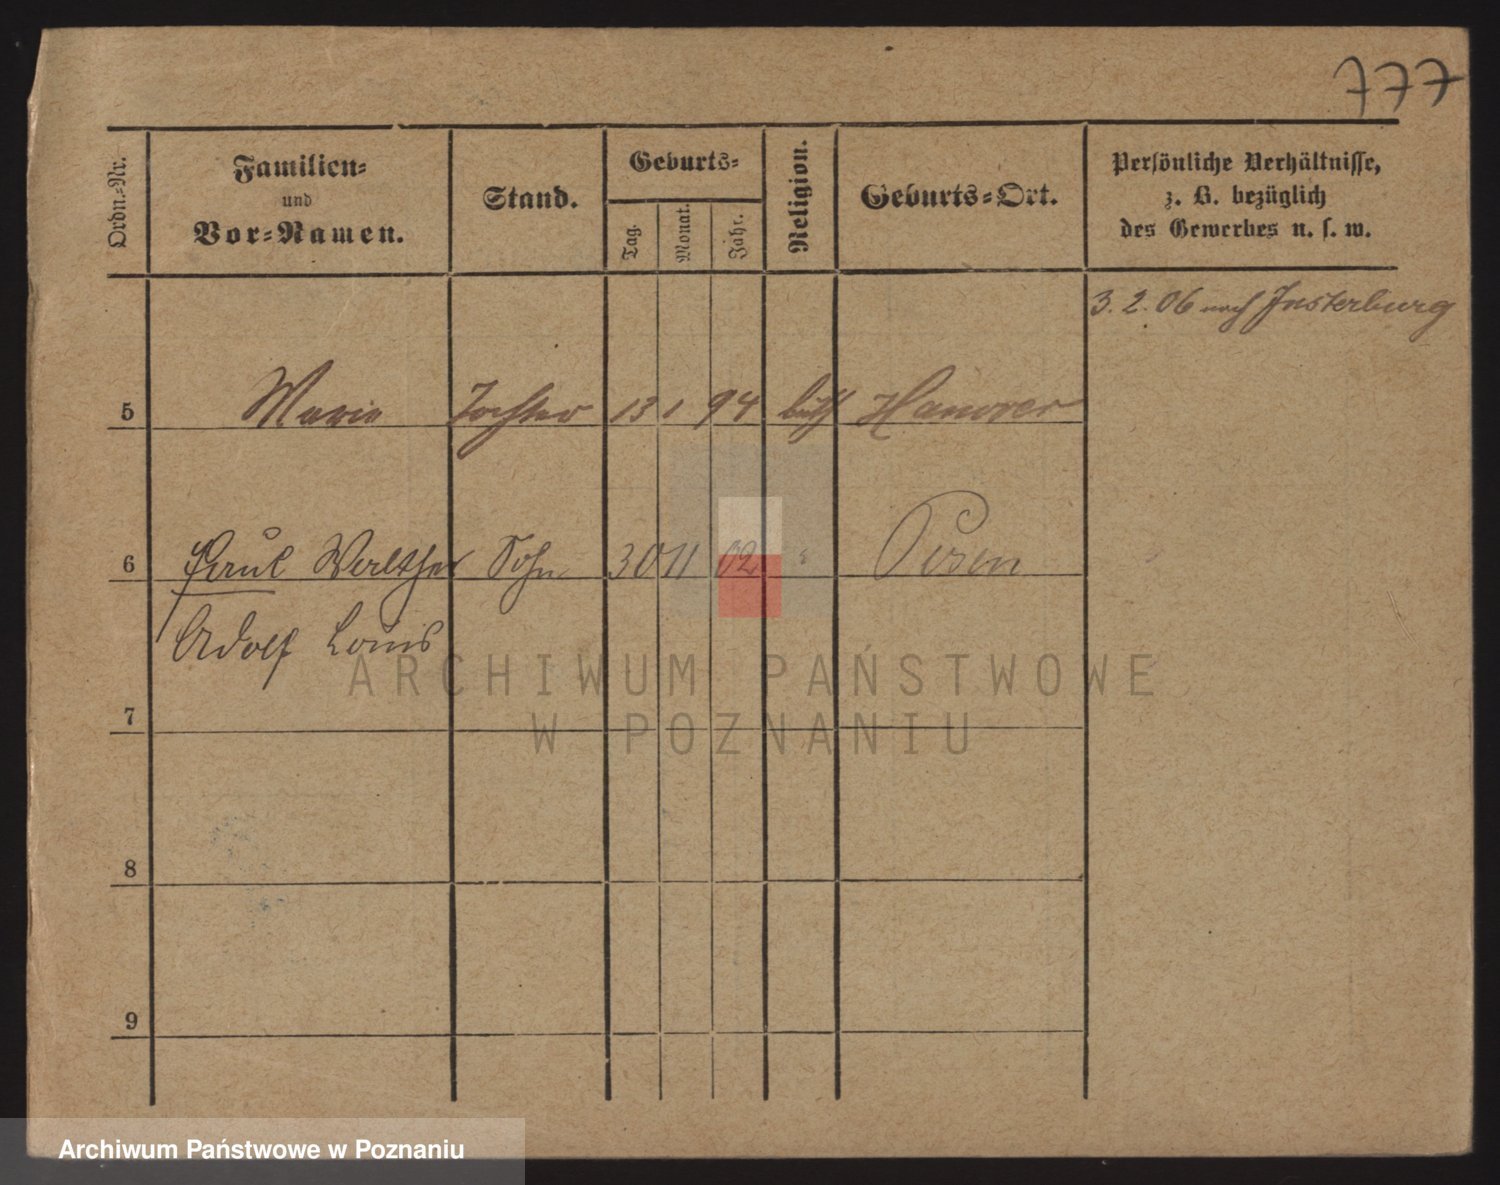 777
Ordn.-Nr.
Familien-
und
Vor-Namen.
Stand.
Geburts-
Tag.
Monat.
Jahr.
Religion.
Geburts-Ort.
Persönliche Verhältnisse,
z. B. bezüglich
des Gewerbes u. s. w.
3. 2. 06 nach Insterburg
5 Marie Tochter 13 1 94 luth Hanover
6 Paul Walther Sohn 30 11 02 " Posen
Adolf Louis
ARCHIWUM PAŃSTWOWE
W POZNANIU
7
8
9
Archiwum Państwowe w Poznaniu